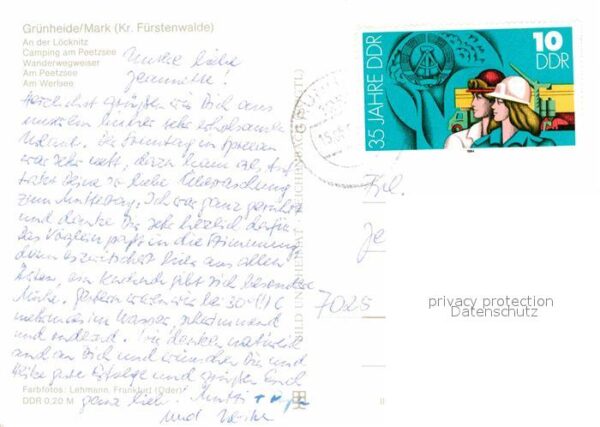 Grünheide/Mark (Kr. Fürstenwalde)
An der Löcknitz
Camping am Peetzsee
Wanderwegweiser
Am Peetzsee
Am Werlsee
Unsere liebe
Jeannette!
Herzlichst grüßen wir Dich aus
unserem bisher sehr erholsamen
Urlaub. Am Sonntag in
war sehr nett, dazu kam als
Deine so liebe Überraschung
zum Muttertag. Ich war ganz gerührt
und danke Dir sehr herzlich dafür.
Das Vöglein paßt in die Stimmung,
denn es zwitschert hier aus allen
gibt sich besondere
Mühe. Gestern waren wir bei 30° C
mehrmals im Wasser, schwimmend
und rudernd. Wir denken natürlich
an Dich und wünschen Dir und
gute Erfolge und grüßen Euch
ganz lieb. Mutti +
und
Farbfotos: Lehmann, Frankfurt (Oder)
DDR 0,20 M
BILD UND HEIMAT REICHENBACH
35 JAHRE DDR
10
DDR
1984
15.
Frl.
Je
7025
privacy protection
Datenschutz